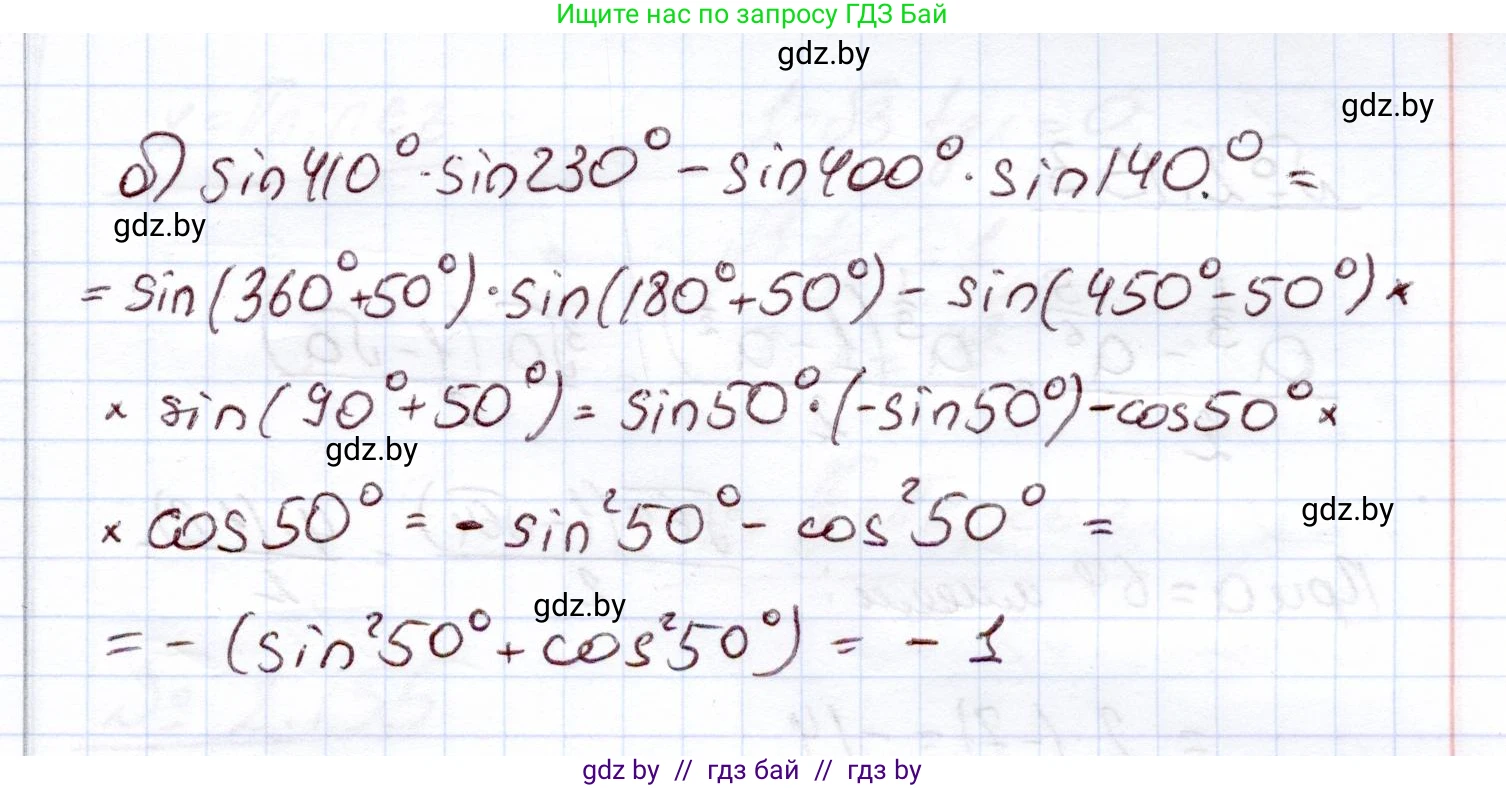 Ищите нас по запросу ГДЗ Бай
gdz.by
gdz.by
б) sin410°·sin230° - sin400°·sin140.° =
gdz.by
= sin(360°+50°)·sin(180°+50°) - sin(450°-50°) ×
× sin(90°+50°) = sin50°·(-sin50°) - cos50° ×
gdz.by
× cos50° = - sin²50° - cos²50° =
gdz.by
gdz.by
= - (sin²50° + cos²50°) = - 1
gdz by // гдз бай // гдз by